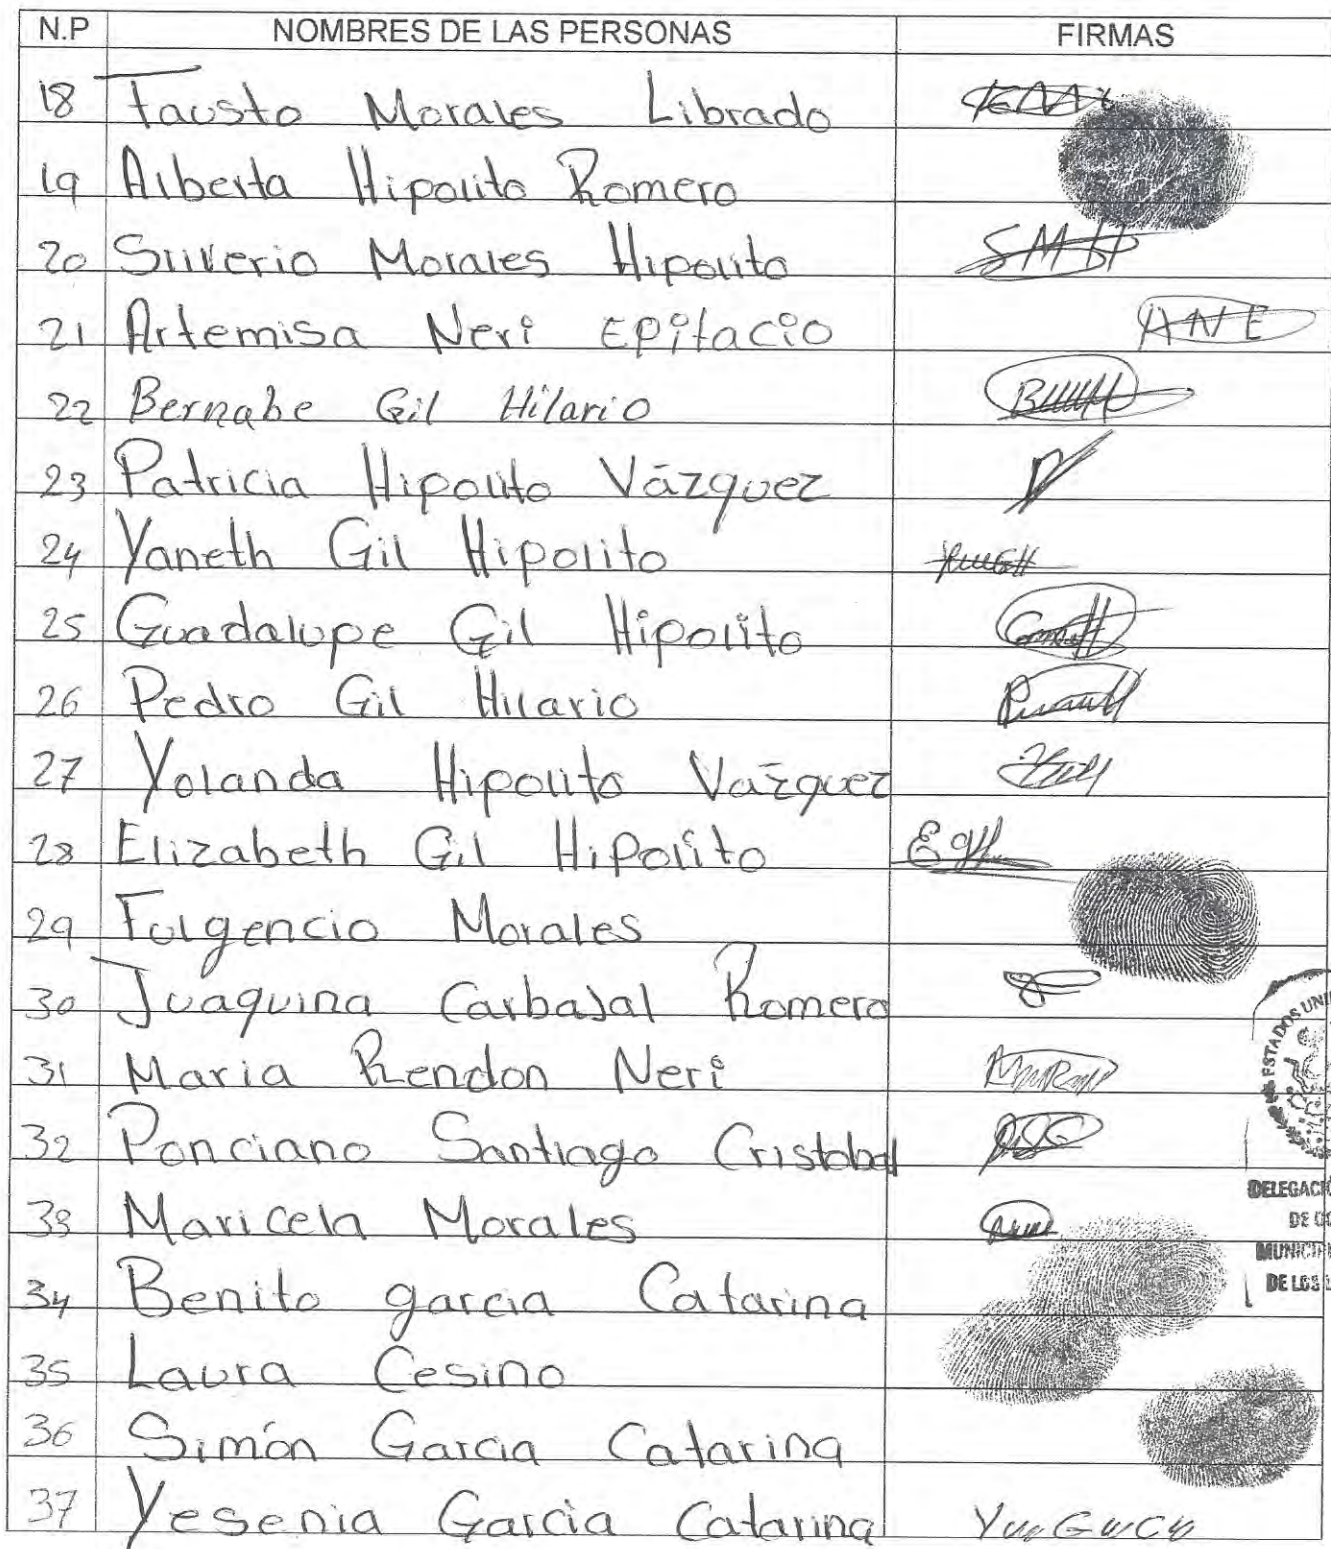 N.P NOMBRES DE LAS PERSONAS FIRMAS
18 Fausto Morales Librado
19 Alberta Hipolito Romero
20 Silverio Morales Hipolito SMH
21 Artemisa Neri Epitacio ANE
22 Bernabe Gil Hilario
23 Patricia Hipolito Vázquez
24 Yaneth Gil Hipolito
25 Guadalupe Gil Hipolito
26 Pedro Gil Hilario
27 Yolanda Hipolito Vázquez
28 Elizabeth Gil Hipolito
29 Fulgencio Morales
30 Juaquina Carbajal Romero
31 Maria Rendon Neri
32 Ponciano Santiago Cristobal
33 Maricela Morales
34 Benito garcia Catarina
35 Laura Cesino
36 Simón Garcia Catarina
37 Yesenia Garcia Catarina
ESTADOS UNI
DELEGACI
MUNICIP
DE LOS